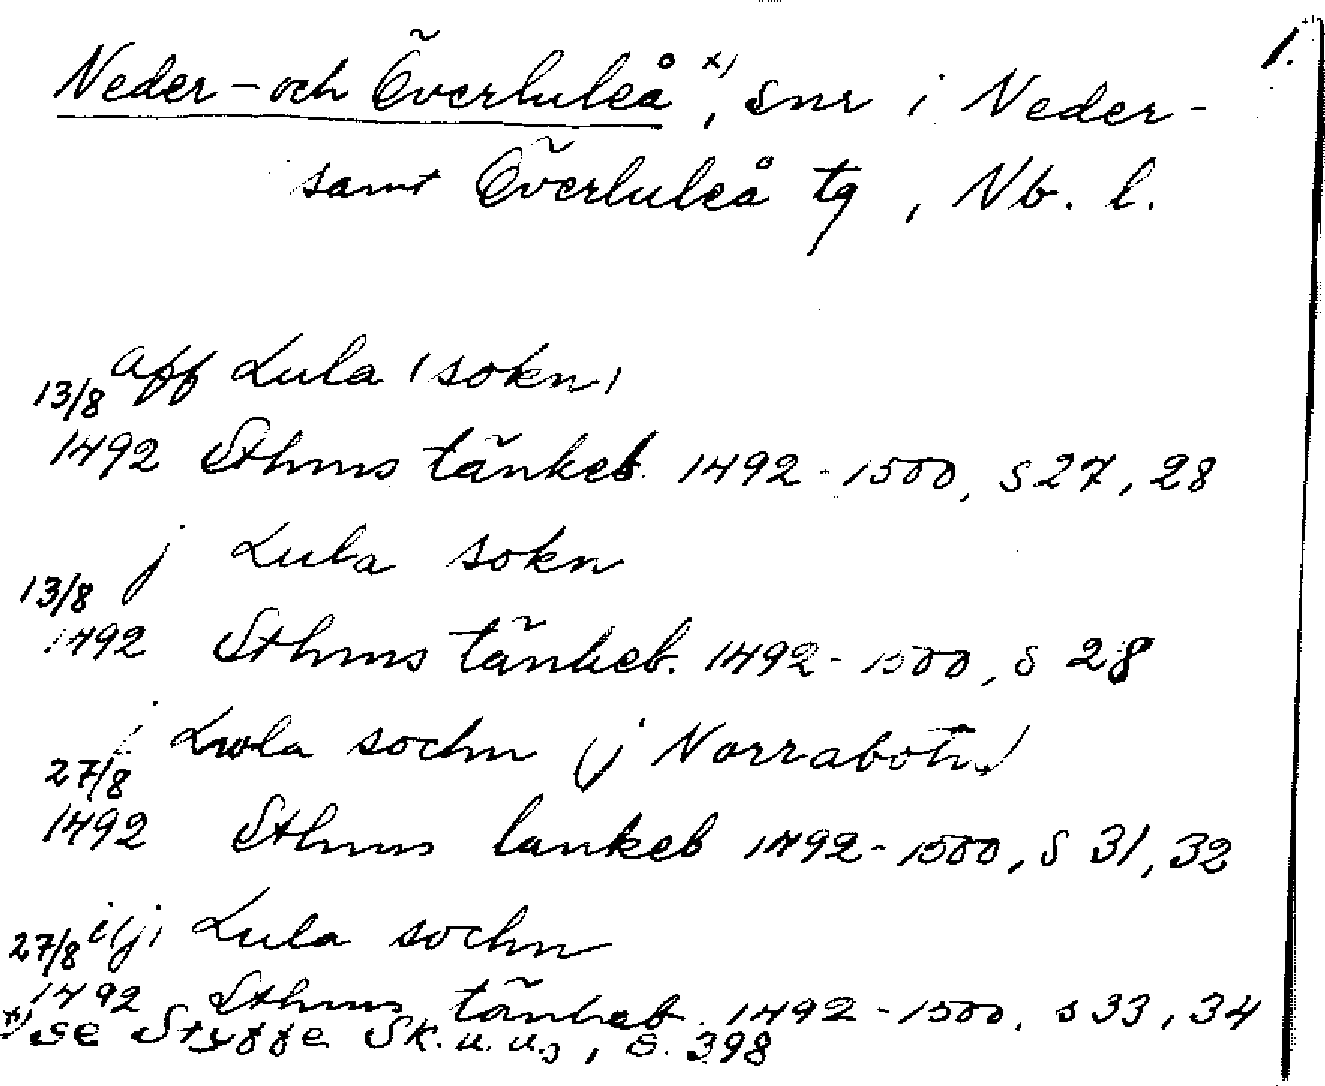 1.
Neder- och Överluleå x), snr i Neder-
samt Överluleå tg, Nb. l.
aff Lula (sokn)
13/8
1492 Sthms tänkeb. 1492-1500, s 27, 28
j Lula sokn
13/8
1492 Sthms tänkeb. 1492-1500, s 28
i Lwla sochn (j Norrabotn)
27/8
1492 Sthms tankeb 1492-1500, s 31, 32
27/8 i(j) Lula sochn
1492 Sthms tänkeb. 1492-1500, s 33, 34
x) se Stygge Sk. u. u., s. 398